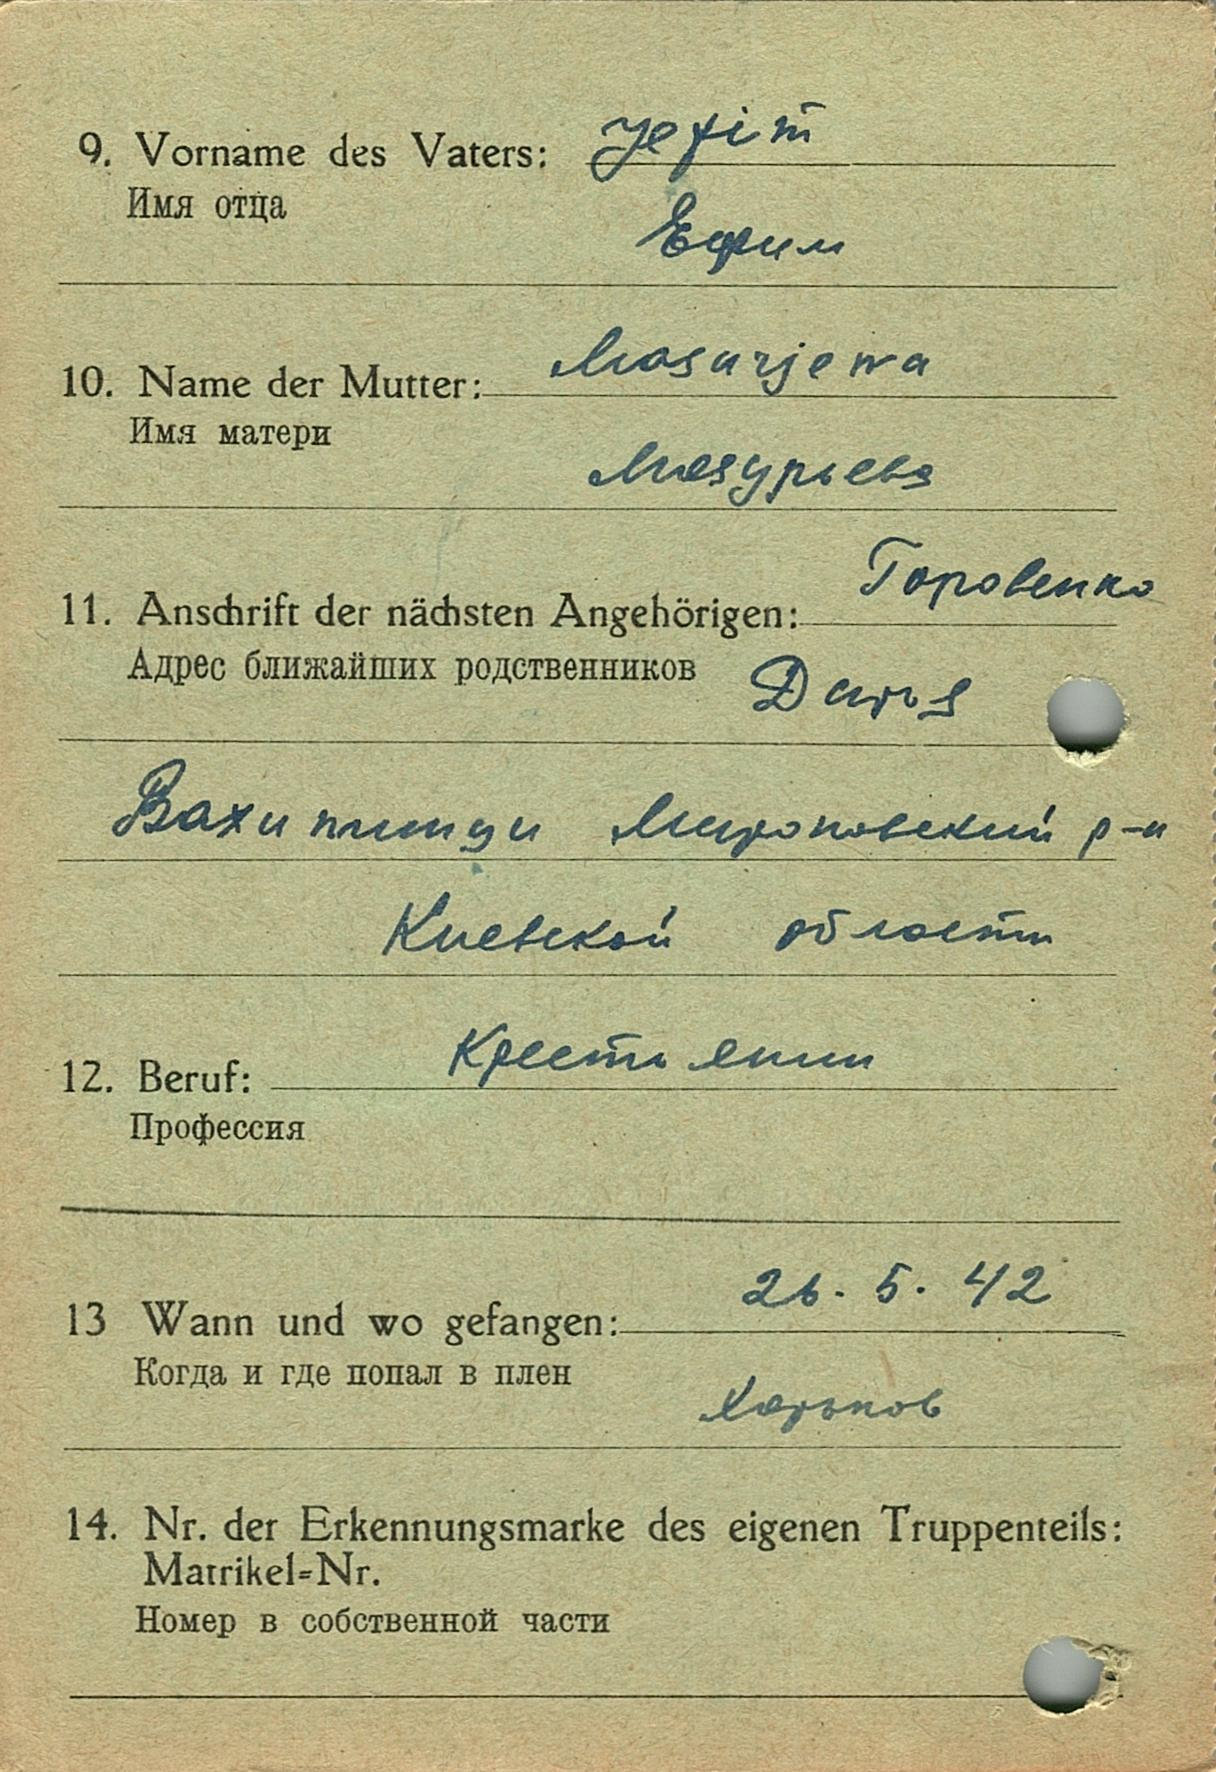 9. Vorname des Vaters: Jefim
Имя отца
Ефим
10. Name der Mutter: Masurjewa
Имя матери
Мазурьева
11. Anschrift der nächsten Angehörigen: Горовенко
Адрес ближайших родственников Дарья
Мироновский р-н
Киевской области
12. Beruf: Крестьянин
Профессия
13 Wann und wo gefangen: 26. 5. 42
Когда и где попал в плен
Харьков
14. Nr. der Erkennungsmarke des eigenen Truppenteils:
Matrikel=Nr.
Номер в собственной части